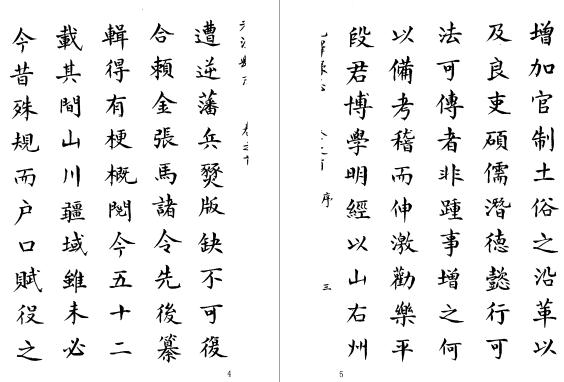 遭逆藩兵燹版缺不可復
合賴金張馬諸令先後纂
輯得有梗概閱今五十二
載其間山川疆域雖未必
今昔殊規而户口賦役之
4
增加官制土俗之沿革以
及良吏碩儒潛德懿行可
法可傳者非踵事增之何
以備考稽而伸激勸樂平
段君博學明經以山右州
序 三
5